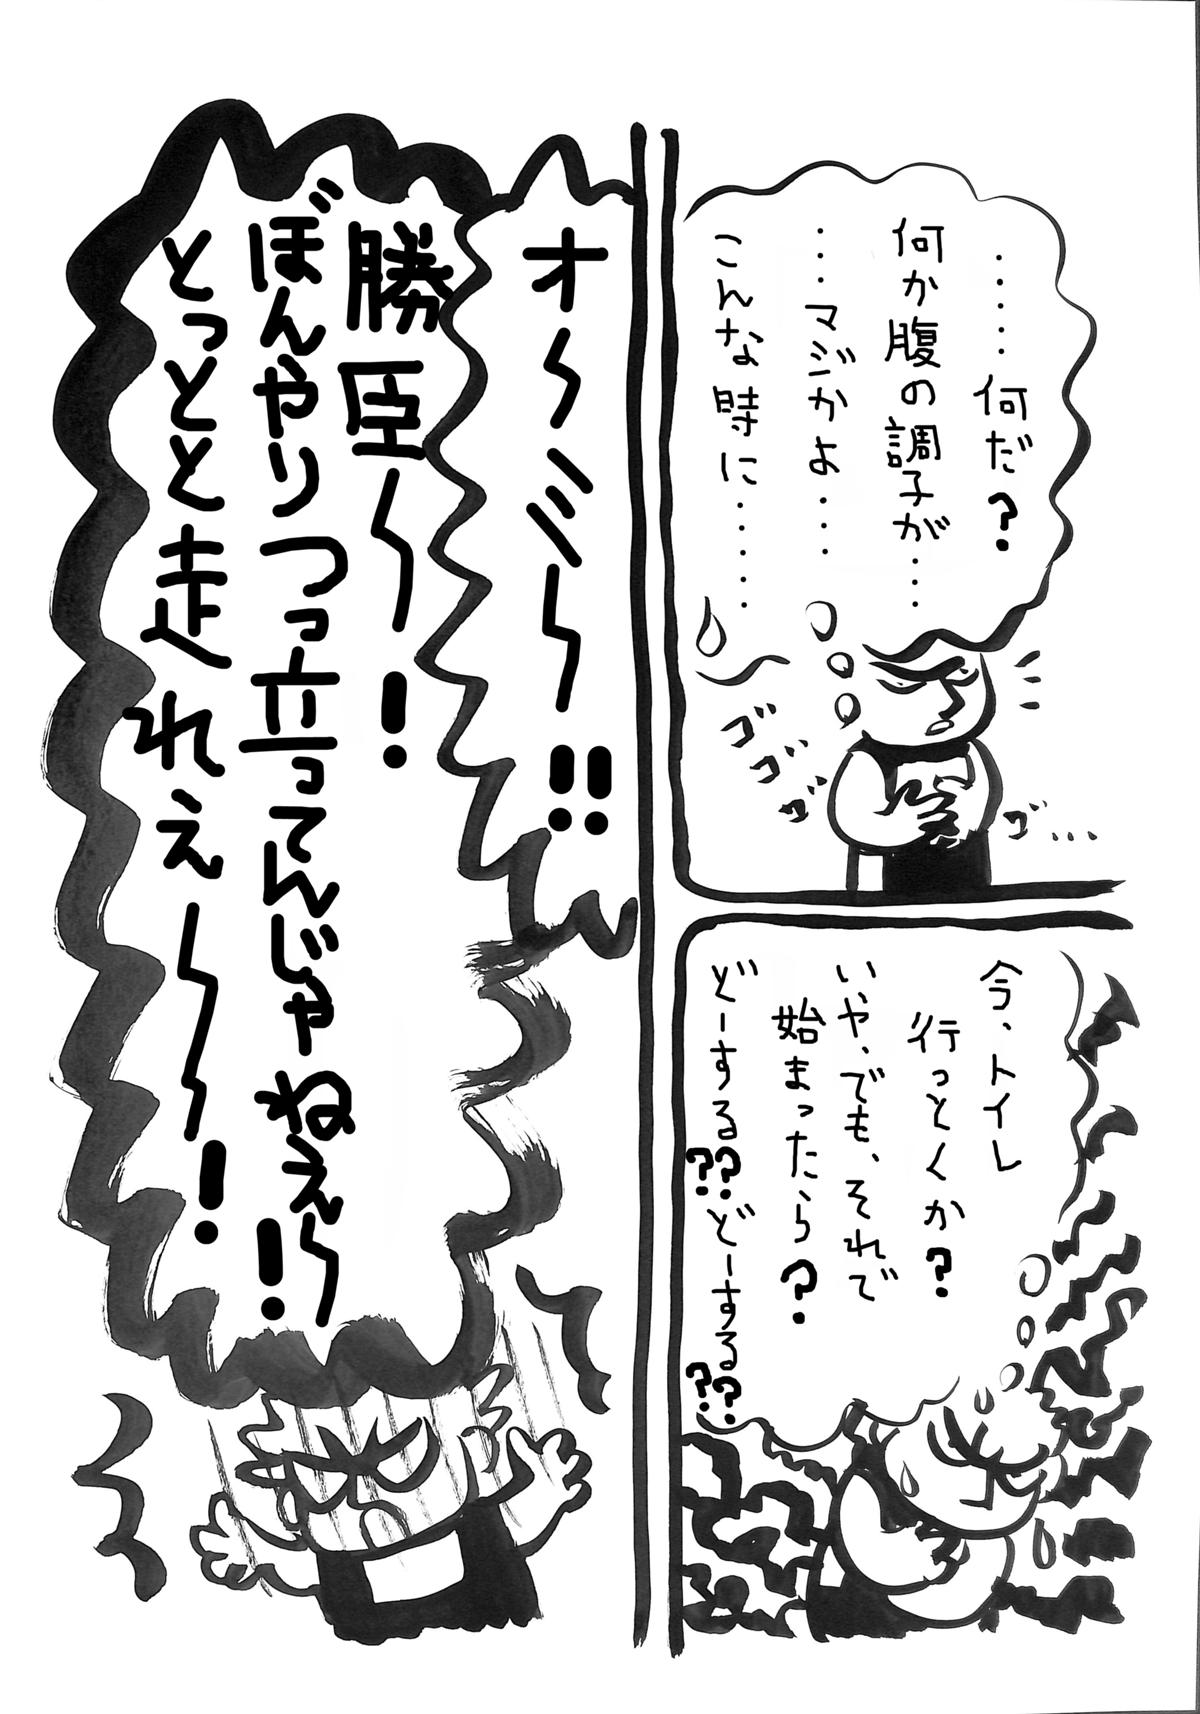 ……何だ？
何か腹の調子が…
…マジかよ…
こんな時に……
ゴゴゴ
ゴ…
今、トイレ
行っとくか？
いや、でも、それで
始まったら？
どーする??どーする??
オ〜ミ〜!!
勝臣〜！
ぼんやりつっ立ってんじゃねえ〜!!
とっとと走れぇ〜〜！